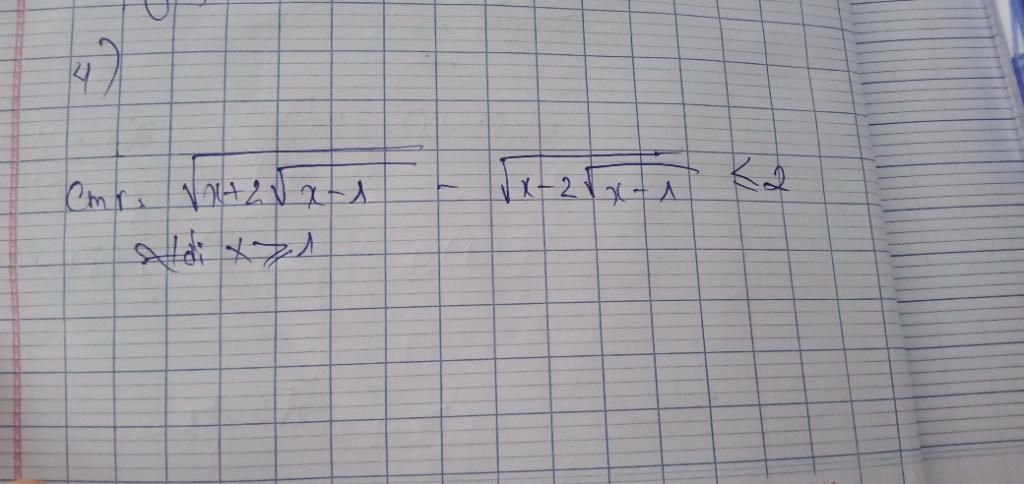 4)
Cmr. √(x+2√(x-1)) - √(x-2√(x-1)) ≤ 2
x ≥ 1